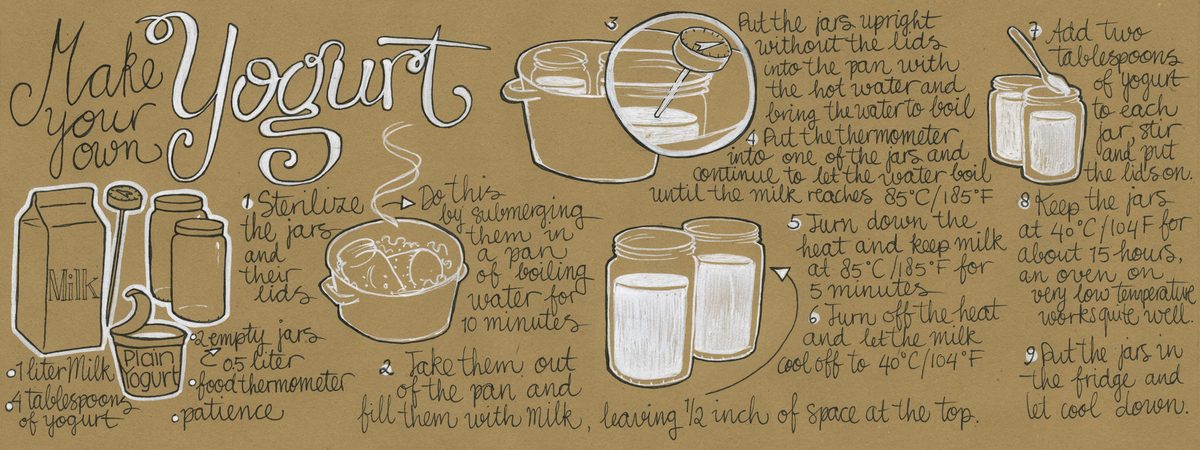 Make
your
own
Yogurt
Milk
Plain
Yogurt
1 liter Milk
4 tablespoons
of yogurt
2 empty jars
0.5 liter
food thermometer
patience
1 Sterilize
the jars
and
their
lids
Do this
by submerging
them in
a pan
of boiling
water for
10 minutes
2 Take them out
of the pan and
fill them with milk, leaving 1/2 inch of space at the top.
3 Put the jars upright
without the lids
into the pan with
the hot water and
bring the water to boil
4 Put the thermometer
into one of the jars and
continue to let the water boil
until the milk reaches 85°C/185°F
5 Turn down the
heat and keep milk
at 85°C/185°F for
5 minutes
6 Turn off the heat
and let the milk
cool off to 40°C/104°F
7 Add two
tablespoons
of yogurt
to each
jar, stir
and put
the lids on.
8 Keep the jars
at 40°C/104F for
about 15 hours,
an oven on
very low temperature
works quite well.
9 Put the jars in
the fridge and
let cool down.